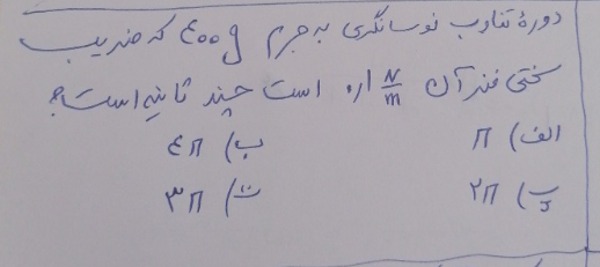 دورهٔ تناوب نوسانگری به جرم ۴۰۰g که ضریب
سختی فنر آن ۰٫۱ N/m است چند ثانیه است؟
الف) π    ب) ۴π
پ) ۲π    ت) ۳π